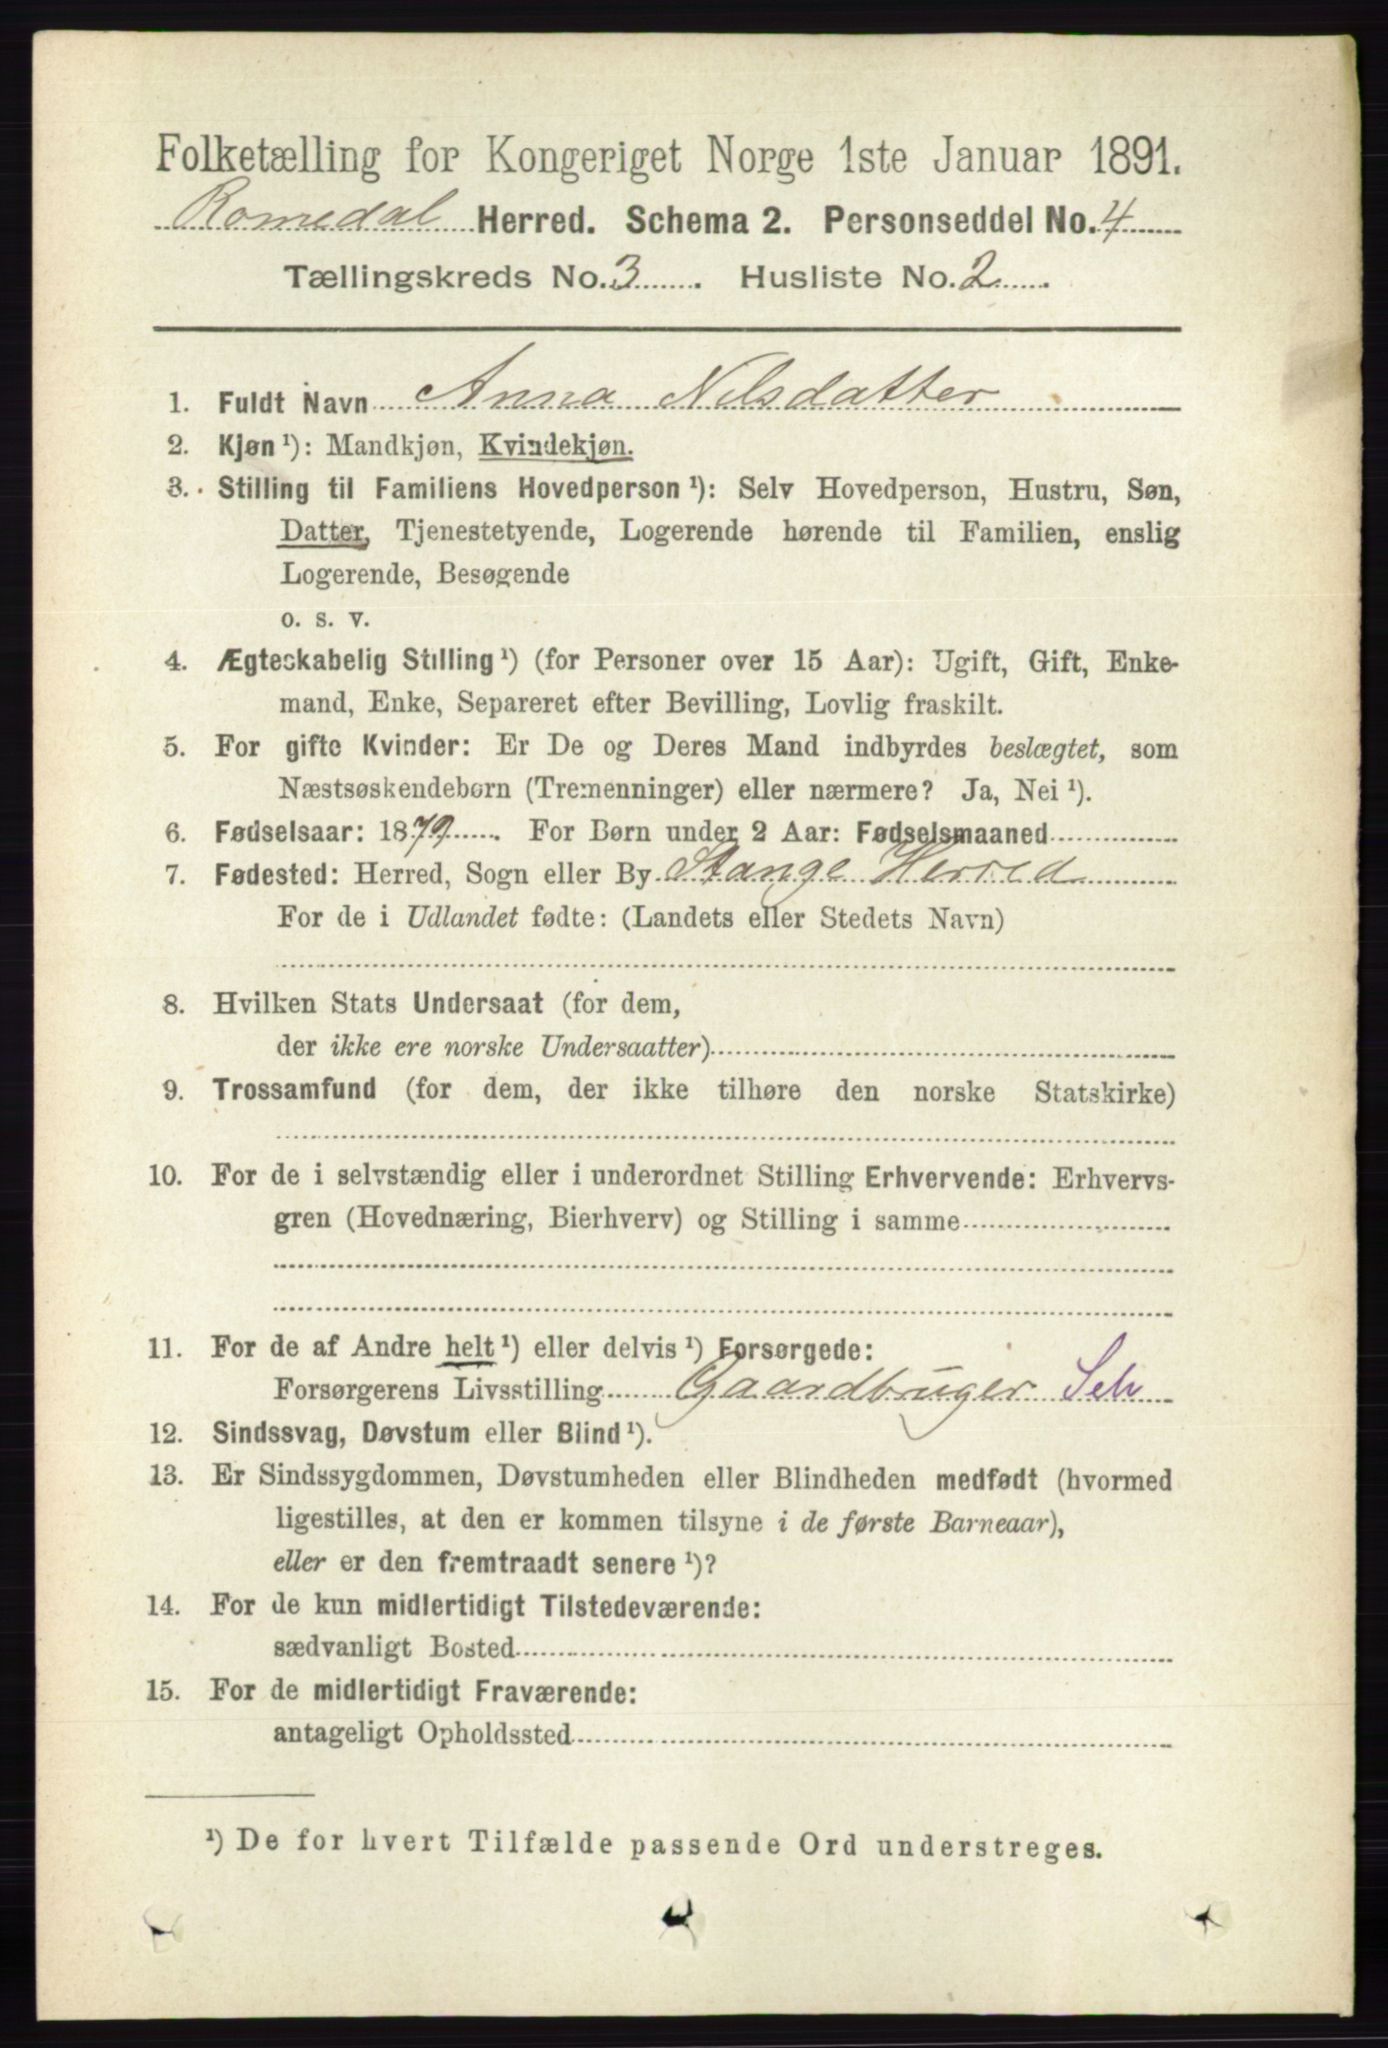 Folketælling for Kongeriget Norge 1ste Januar 1891.
Romedal Herred. Schema 2. Personseddel No. 4
Tællingskreds No. 3. Husliste No. 2.
1. Fuldt Navn Anna Nilsdatter
2. Kjøn¹): Mandkjøn, Kvindekjøn.
3. Stilling til Familiens Hovedperson¹): Selv Hovedperson, Hustru, Søn,
Datter, Tjenestetyende, Logerende hørende til Familien, enslig
Logerende, Besøgende
o. s. v.
4. Ægteskabelig Stilling¹) (for Personer over 15 Aar): Ugift, Gift, Enke-
mand, Enke, Separeret efter Bevilling, Lovlig fraskilt.
5. For gifte Kvinder: Er De og Deres Mand indbyrdes beslægtet, som
Næstsøskendebørn (Tremenninger) eller nærmere? Ja, Nei¹).
6. Fødselsaar: 1879. For Børn under 2 Aar: Fødselsmaaned
7. Fødested: Herred, Sogn eller By Stange Herred
For de i Udlandet fødte: (Landets eller Stedets Navn)
8. Hvilken Stats Undersaat (for dem,
der ikke ere norske Undersaatter)
9. Trossamfund (for dem, der ikke tilhøre den norske Statskirke)
10. For de i selvstændig eller i underordnet Stilling Erhvervende: Erhvervs-
gren (Hovednæring, Bierhverv) og Stilling i samme
11. For de af Andre helt¹) eller delvis¹) Forsørgede:
Forsørgerens Livsstilling Gaardbruger Selv
12. Sindssvag, Døvstum eller Blind¹).
13. Er Sindssygdommen, Døvstumheden eller Blindheden medfødt (hvormed
ligestilles, at den er kommen tilsyne i de første Barneaar),
eller er den fremtraadt senere¹)?
14. For de kun midlertidigt Tilstedeværende:
sædvanligt Bosted
15. For de midlertidigt Fraværende:
antageligt Opholdssted
¹) De for hvert Tilfælde passende Ord understreges.